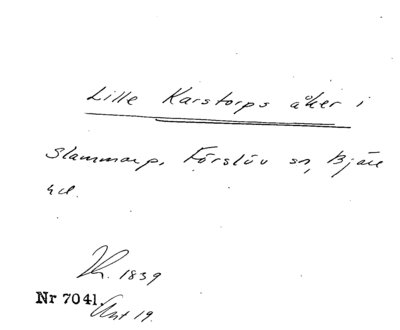 Lille Karstorps åker i
Slammarp, Förslöv sn, Bjäre
hd.
1839
Nr 7041.
Akt 19.